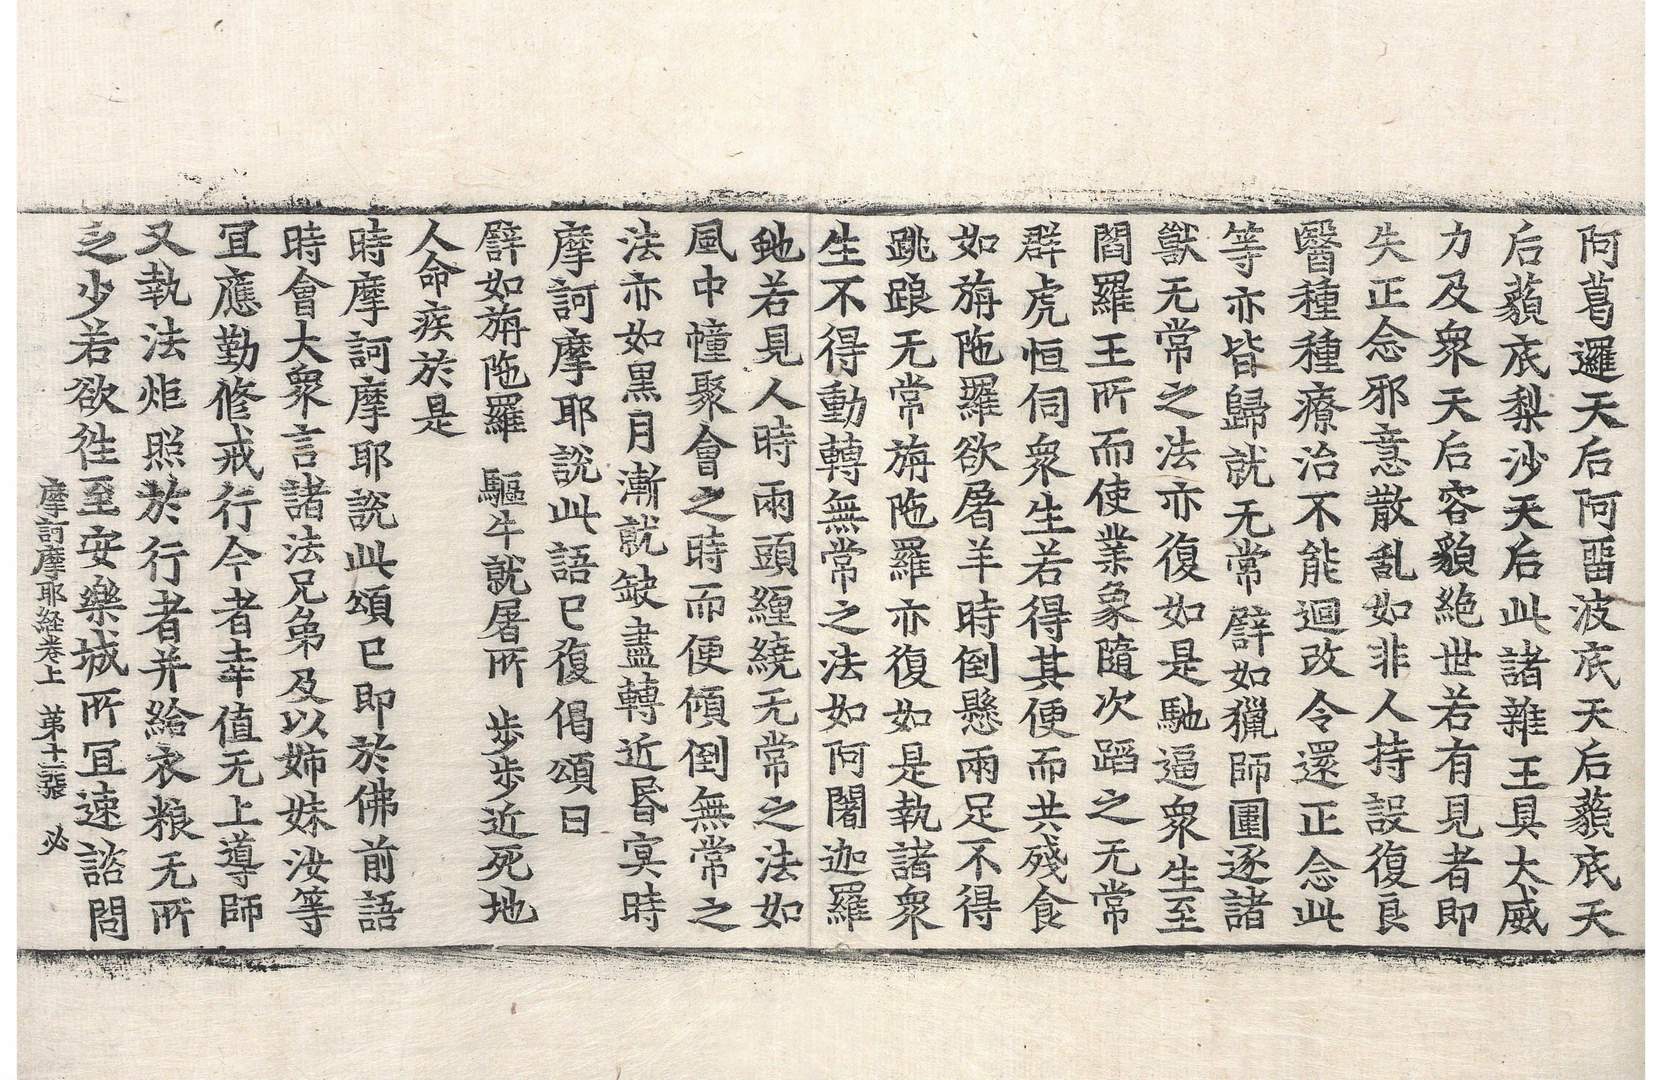 阿葛邏天后阿畱波底天后藾底天
后藾底梨沙天后此諸雜王具大威
力及衆天后容䫉絶世若有見者即
失正念邪意散乱如非人持設復良
醫種種療治不能迴改令還正念此
等亦皆歸就无常譬如獵師圍逐諸
獸无常之法亦復如是馳逼衆生至
閻羅王所而使業象隨次蹈之无常
群虎恒伺衆生若得其便而共殘食
如旃陁羅欲屠羊時倒懸兩足不得
跳踉无常旃陁羅亦復如是執諸衆
生不得動轉無常之法如阿闍迦羅
虵若見人時兩頭纏繞无常之法如
風中幢聚會之時而便傾倒無常之
法亦如黒月漸就缺盡轉近昬㝠時
摩訶摩耶說此語已復偈頌曰
譬如旃陁羅　驅牛就屠所　步步近死地
人命疾於是
時摩訶摩耶說此頌已即於佛前語
時會大衆言諸法兄弟及以姉妹汝等
宜應勤修戒行今者幸值无上導師
又執法炬照於行者并給衣粮无所
乏少若欲徃至安樂城所宜速諮問
摩訶摩耶経卷上　第十二張　必